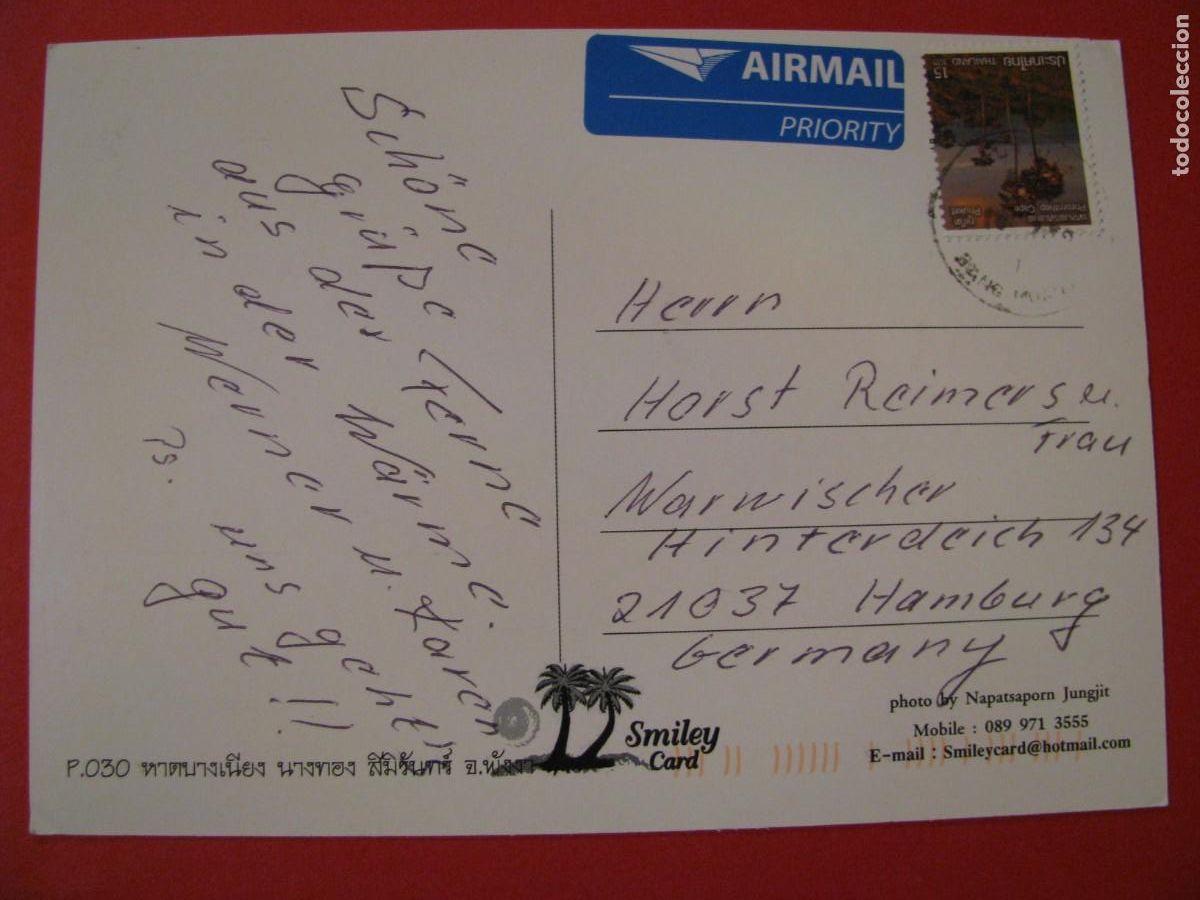 AIRMAIL
PRIORITY
ประเทศไทย THAILAND
15
Promthep Cape
Phuket
Schöne
grüße
aus der Wärme.
in der
Werner u. Karen
Ps. uns geht
gut !!
Herrn
Horst Reimers u.
Frau
Warwischer
Hinterdeich 134
21037 Hamburg
Germany
photo by Napatsaporn Jungjit
Mobile : 089 971 3555
E-mail : Smileycard@hotmail.com
Smiley
Card
P.030 หาดบางเนียง นางทอง สิมิรันทร์ อ.พังงา
todocoleccion